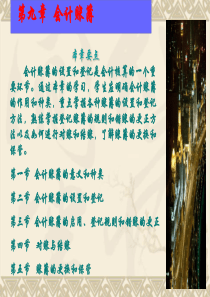 第九章 会计账簿
本章要点
会计账簿的设置和登记是会计核算的一个重
要环节。通过本章的学习，学生应明确会计账簿
的作用和种类，重点掌握各种账簿的设置和登记
方法，熟练掌握登记账簿的规则和错账的更正方
法以及如何进行对账和结账，了解账簿的更换和
保管。
第一节 会计账簿的意义和种类
第二节 会计账簿的设置和登记
第三节 会计账簿的启用、登记规则和错账的更正
第四节 对账与结账
第五节 账簿的更换和保管